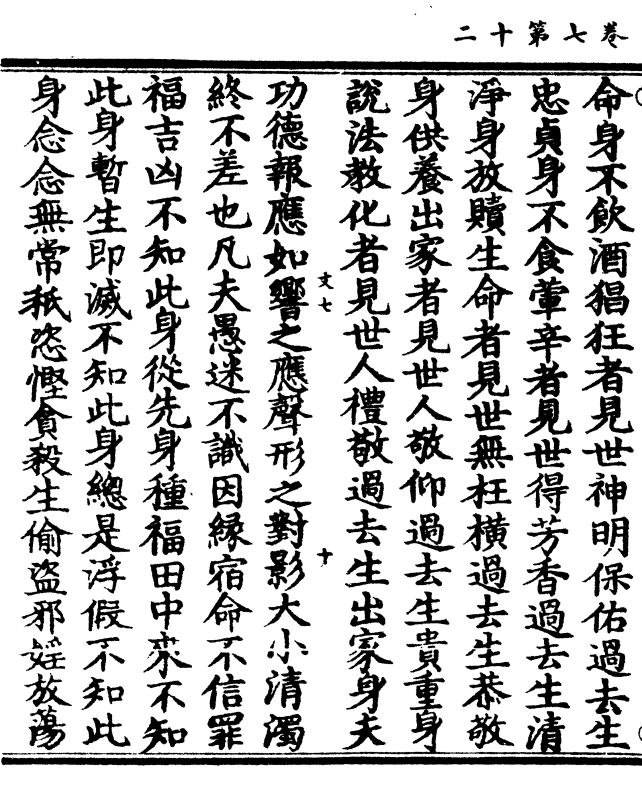 卷七第十二
命身不飲酒猖狂者見世神明保佑過去生
忠貞身不食葷辛者見世得芳香過去生清
淨身放贖生命者見世無枉橫過去生恭敬
身供養出家者見世人敬仰過去生貴重身
說法教化者見世人禮敬過去生出家身夫
文七
十
功德報應如響之應聲形之對影大小清濁
終不差也凡夫愚迷不識因緣宿命不信罪
福吉凶不知此身從先身種福田中來不知
此身暫生即滅不知此身總是浮假不知此
身念念無常秖恣慳貪殺生偷盜邪婬放蕩